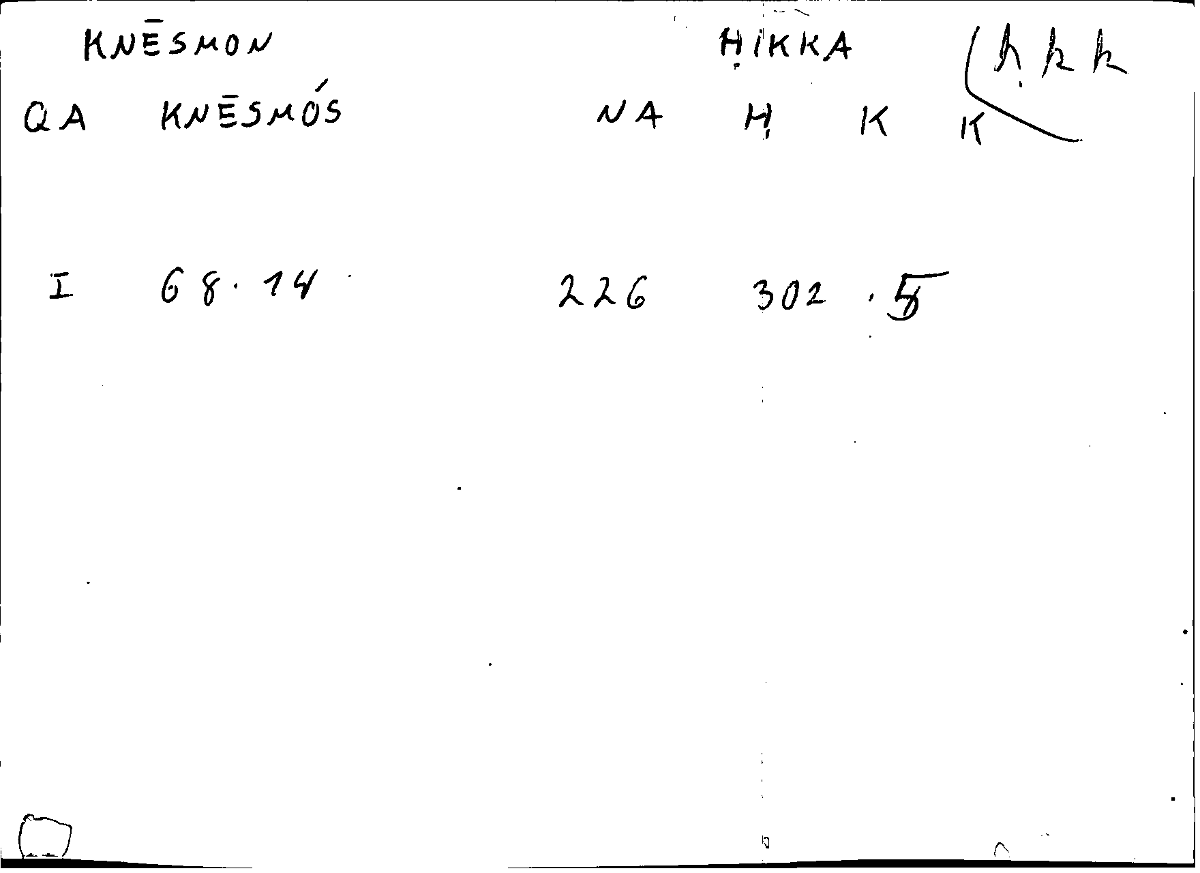 KNĒSMON ḤIKKA (ḥkk
QA KNĒSMÓS NA Ḥ K K
I 68.14 226 302 .